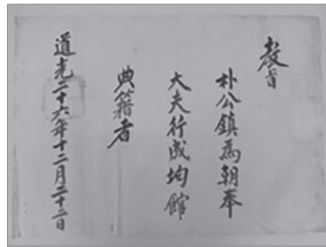 敎旨
朴公鎭爲朝奉
大夫行成均館
典籍者
道光二十六年十二月二十二日